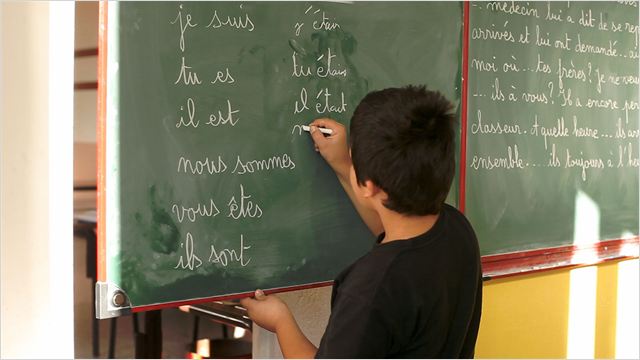 je suis
j'étais
tu es
tu étais
il est
il était
n
nous sommes
vous êtes
ils sont
médecin lui a dit de se rep
arrivés et lui ont demandé...
moi où... tes frères? Je ne
... ils à vous? Il a encore per
classeur. A quelle heure... ils
ensemble.... ils toujours à l'heu